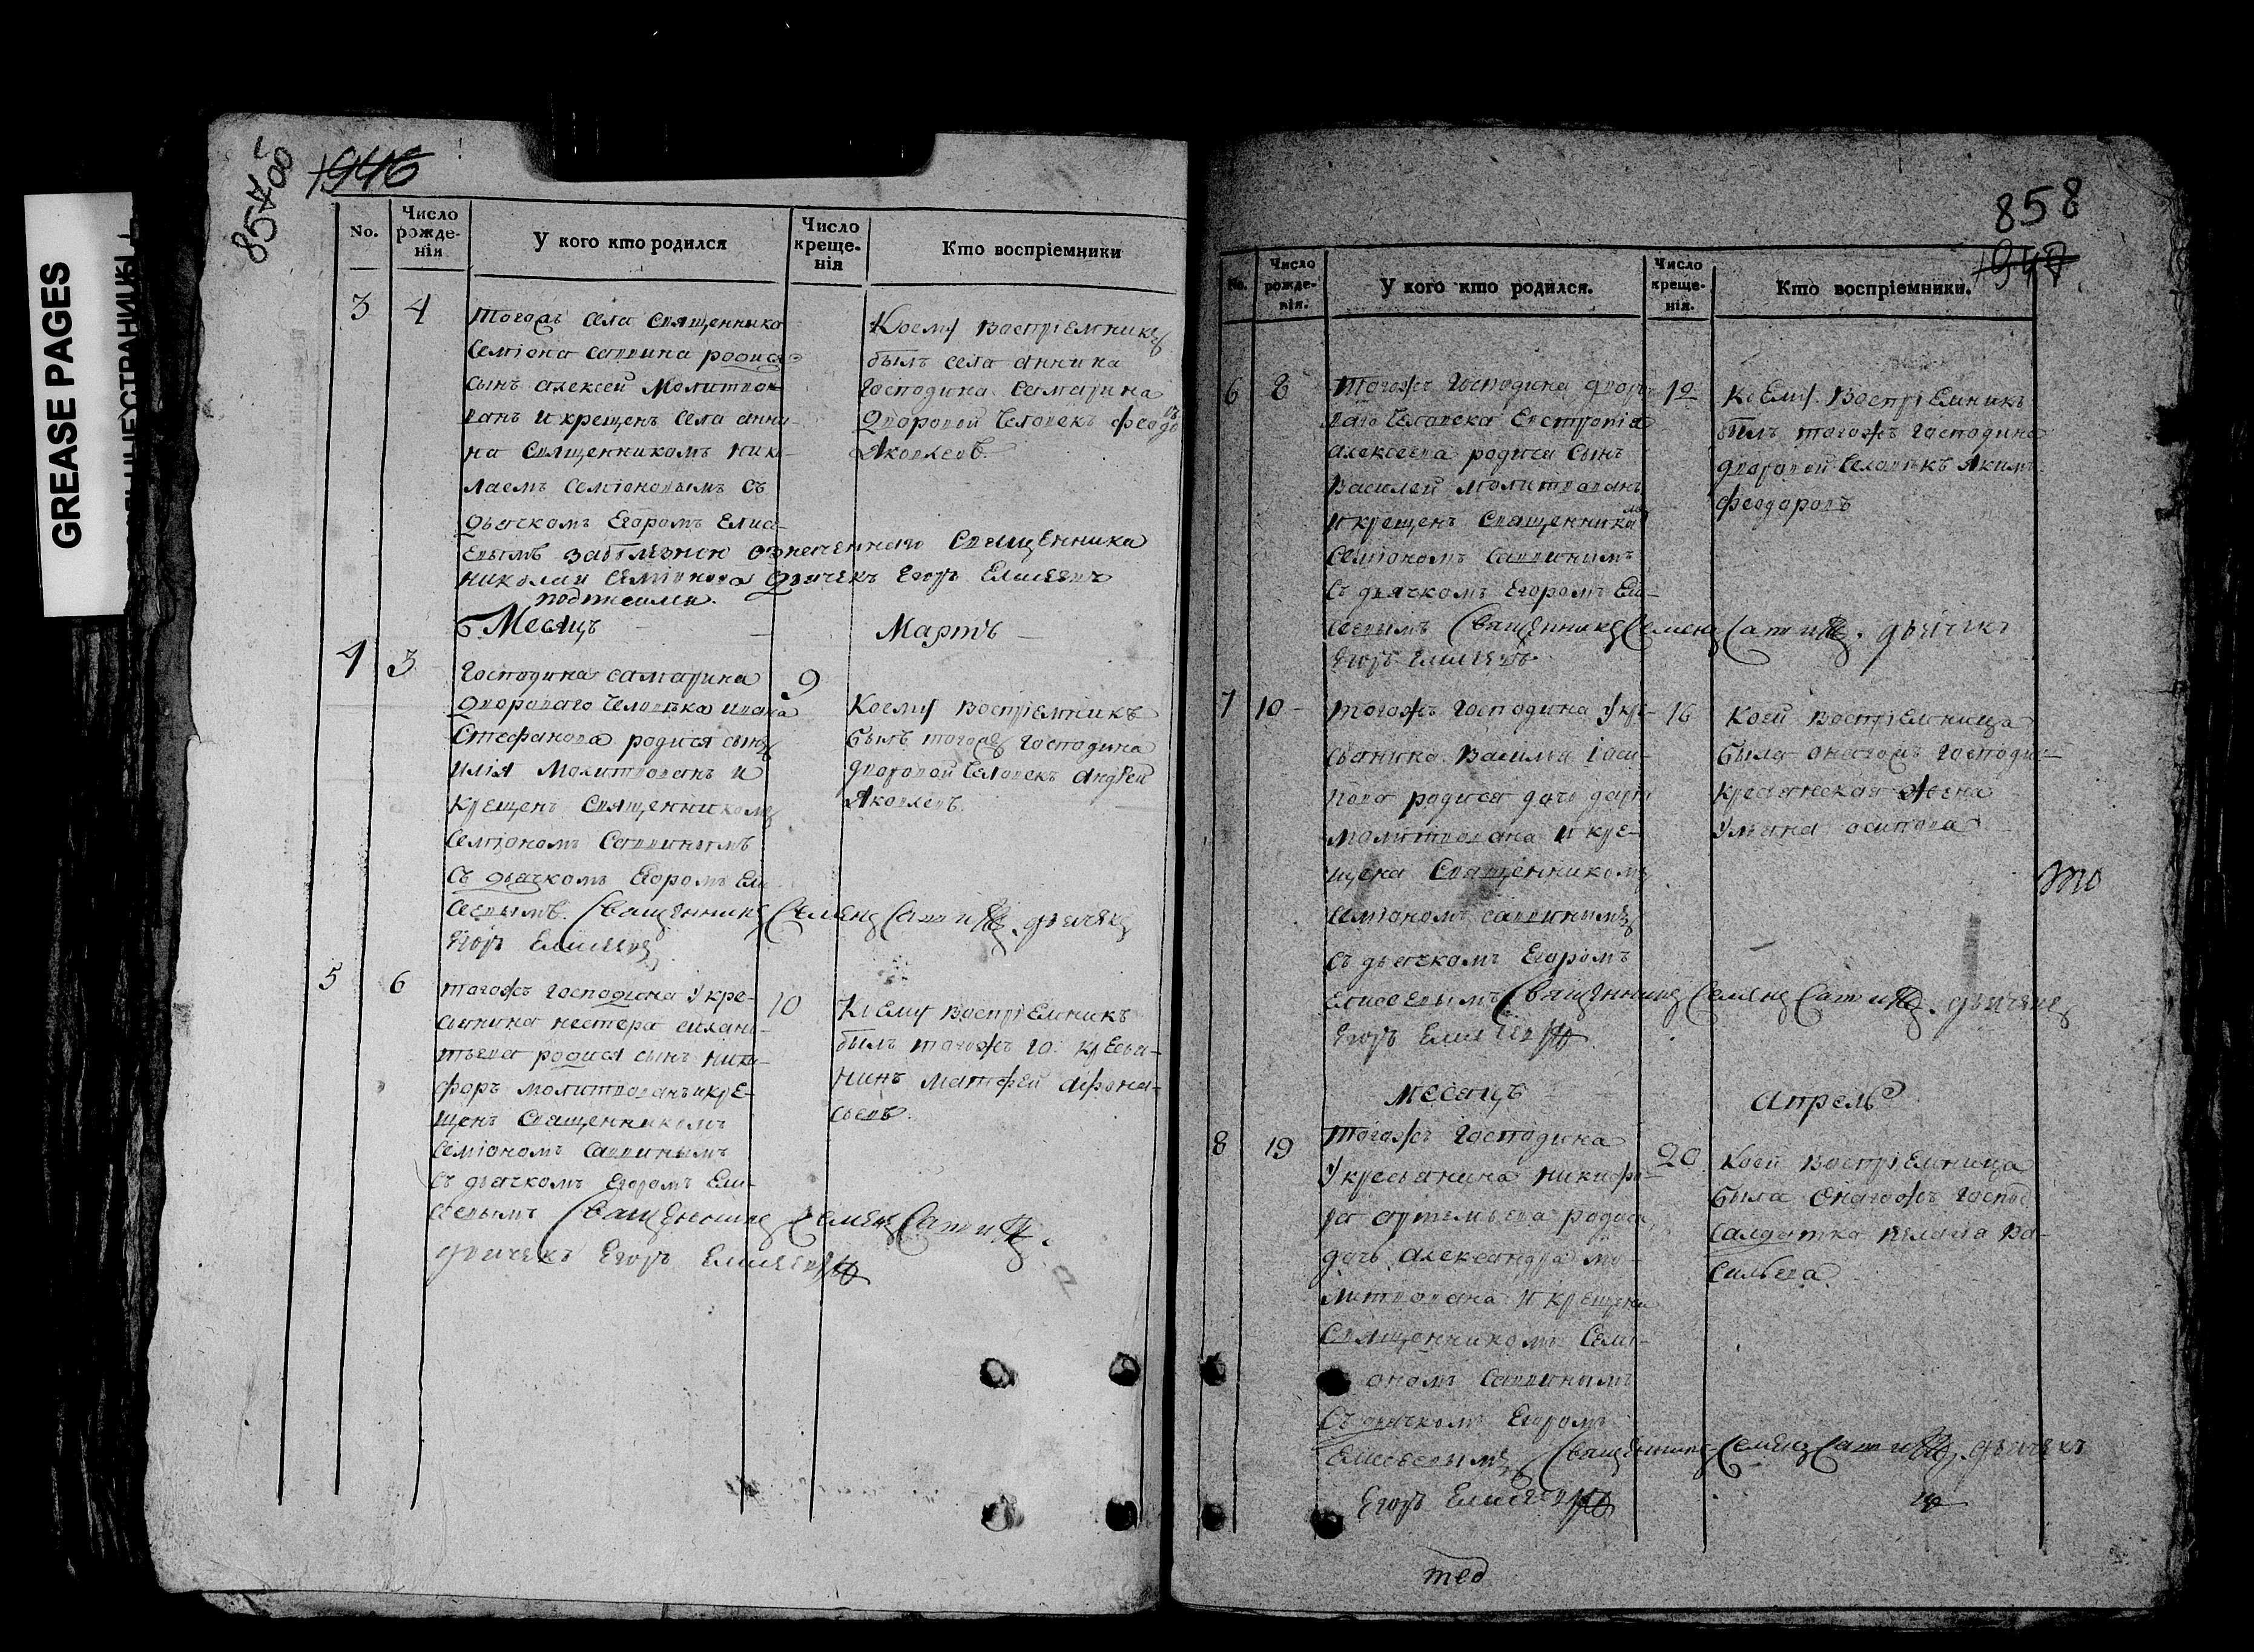 GREASE PAGES
857 об
1946
No.
Число рожде-нія
У кого кто родился
Число креще-нія
Кто воспріемники
3
4
Тогожъ села священника
Семіона Саввина родися
сынъ алексей Молитво
ванъ и крещенъ села анни
на священникомъ Нико
лаемъ Семіоновымъ съ
Дьячкомъ Егоромъ Елисе
евымъ заболезнію означеннаго священника
николай Семіоновъ Дьячекъ Егоръ Елисеевъ
подписался.
Коему воспріемникъ
былъ села аннина
господина Самарина
Дворовой человекъ феодо
Яковлевъ.
Месяцъ
Мартъ
4
3
Господина самарина
Двороваго человека ивана
Стефанова родися сынъ
илія Молитвованъ и
крещенъ священникомъ
Семіономъ Саввинымъ
Съ дьячкомъ Егоромъ Ели
сеевымъ. Священникъ Семенъ Саввинъ. дьячекъ
Егоръ Елисеевъ
9
Коему воспріемникъ
былъ тогожъ господина
дворовой человекъ андрей
Яковлевъ.
5
6
тогожъ господина у кре-
стьянина нестера силан-
тьева родися сынъ ники-
форъ молитвованъ и кре-
щенъ священникомъ
семіономъ Саввинымъ
съ дьячкомъ Егоромъ Ели-
сеевымъ Священникъ Семенъ Саввинъ.
дьячекъ Егоръ Елисеевъ
10
Коему воспріемникъ
былъ тогожъ го. кресья-
нинъ матфей афона-
сьевъ.
858
1947
No.
Число рожде-нія.
У кого кто родился.
Число креще-нія.
Кто воспріемники.
6
8
Тогожъ господина дворо
ваго человека Евстропія
алексеева родися сынъ
Василей молитвованъ
и крещенъ священникомъ
семіономъ саввинымъ
съ дьячкомъ Егоромъ Ели-
сеевымъ Священникъ Семенъ Саввинъ. дьячекъ
Егоръ Елисеевъ.
12
Коему Воспріемникъ
былъ тогожъ господина
дворовой человекъ Яким
феодоровъ
7
10
Тогожъ господина у кре-
сьянина Василья Іоси-
пова родися дочь дарья
молитвована и кре-
щена Священникомъ
семіономъ саввинымъ
съ дьячкомъ Егоромъ
елисеевымъ Священникъ Семенъ Саввинъ. дьячекъ
Егоръ Елисеевъ
16
Коей воспріемница
была онагожъ господи
кресьянская жена
Ульяна осипова
то
месяцъ
апрель
8
19
Тогожъ господина
у кресьянина никифо-
ра артемьева родися
дочь александра мо-
литвована и крещена
Священникомъ Семі-
ономъ Саввинымъ
Съ дьячкомъ Егоромъ
Елисеевымъ Священникъ Семенъ Саввинъ. дьячекъ
Егоръ Елисеевъ
20
Коей воспріемница
была Онагожъ господ
салдатка пелагія Ва-
сильева